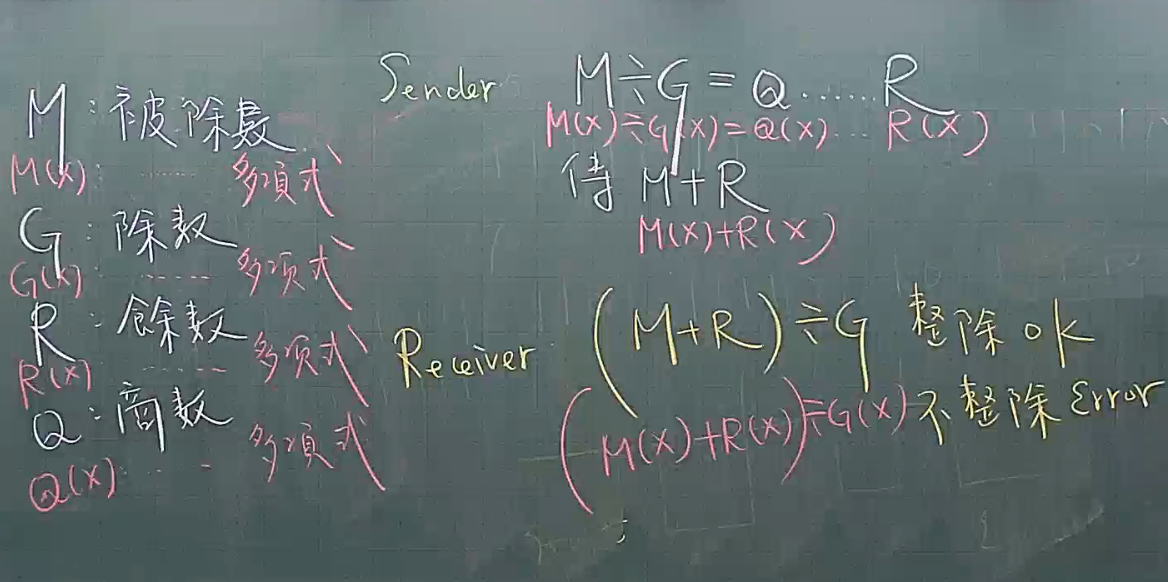 M：被除數
M(X)：…… 多項式
G：除数
G(X)：…… 多項式
R：餘数
R(X)：…… 多項式
Q：商数
Q(X)：…… 多項式
Sender M÷G=Q……R
M(X)÷G(X)=Q(X)…R(X)
傳 M+R
M(X)+R(X)
Receiver (M+R)÷G 整除 ok
(M(X)+R(X))÷G(X) 不整除 Error